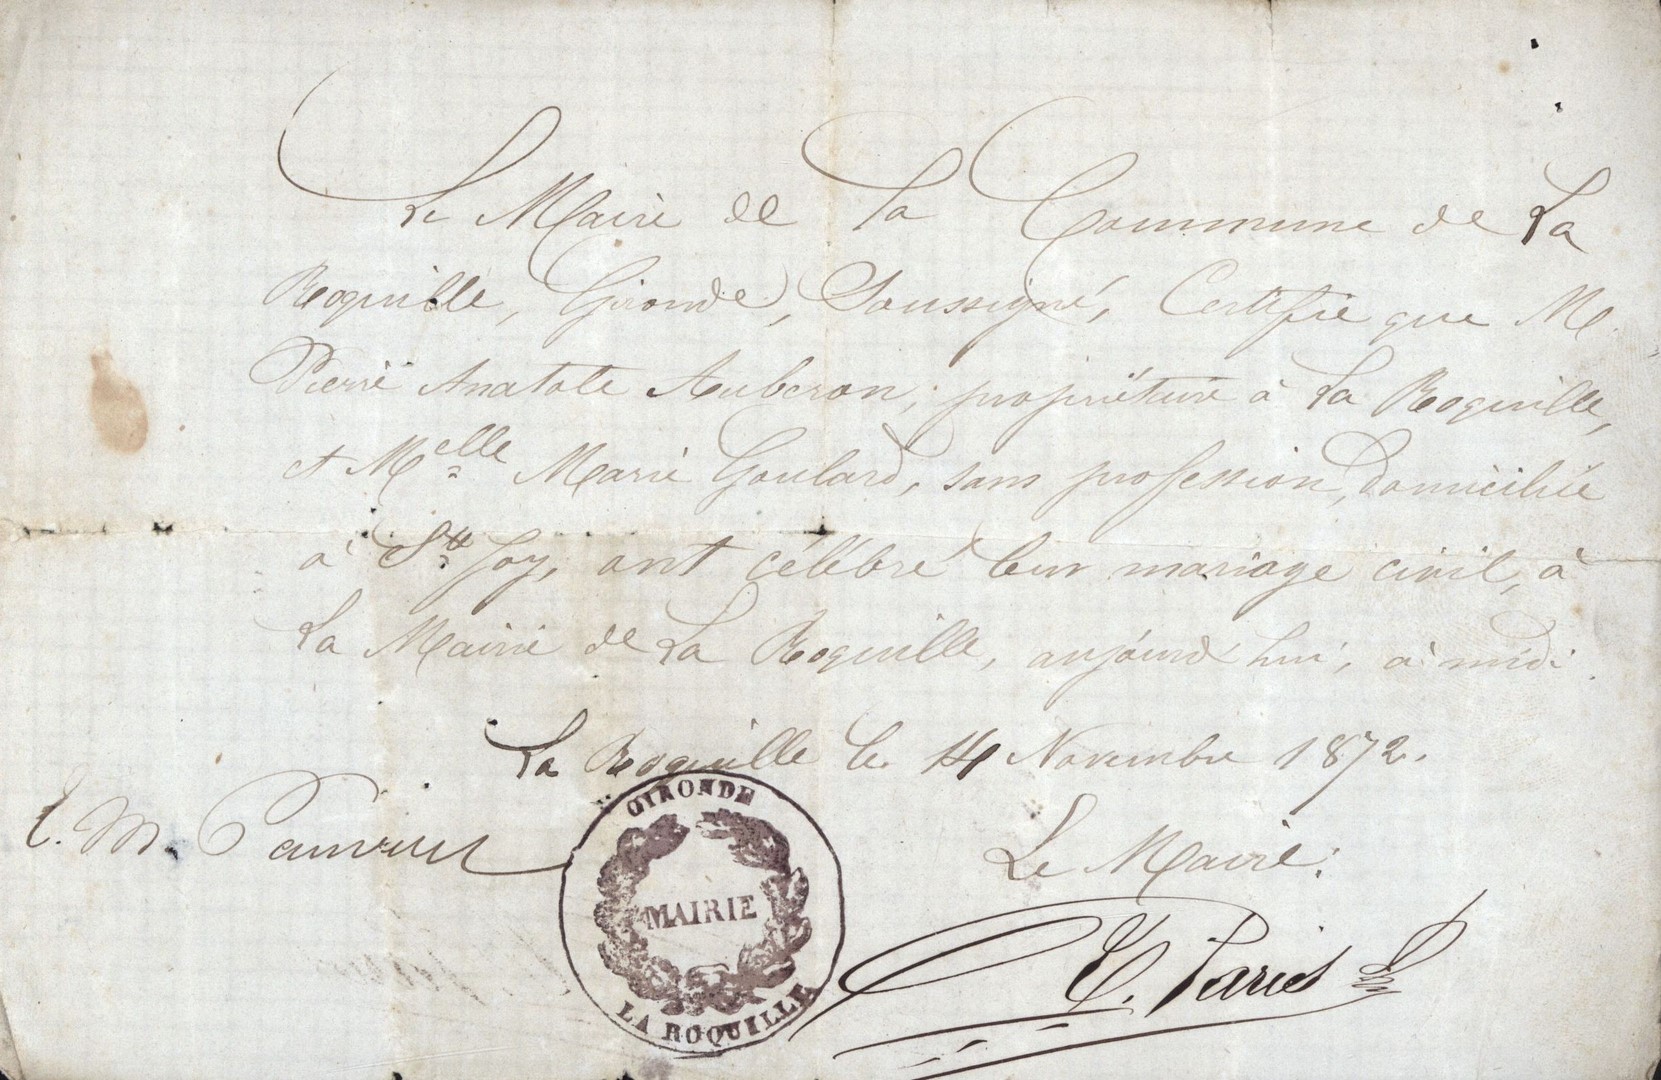 Le Maire de la Commune de La
Roquille, Gironde, Soussigné, Certifie que M.
Pierre Anatole Auberon, propriétaire à La Roquille,
et Melle Marie Goulard, sans profession, domiciliée
à Ste Foy, ont célébré leur mariage civil, à
La Mairie de La Roquille, aujourd'hui, à midi.
La Roquille le 14 Novembre 1872.
Le Maire:
E. M.
GIRONDE
MAIRIE
LA ROQUILLE